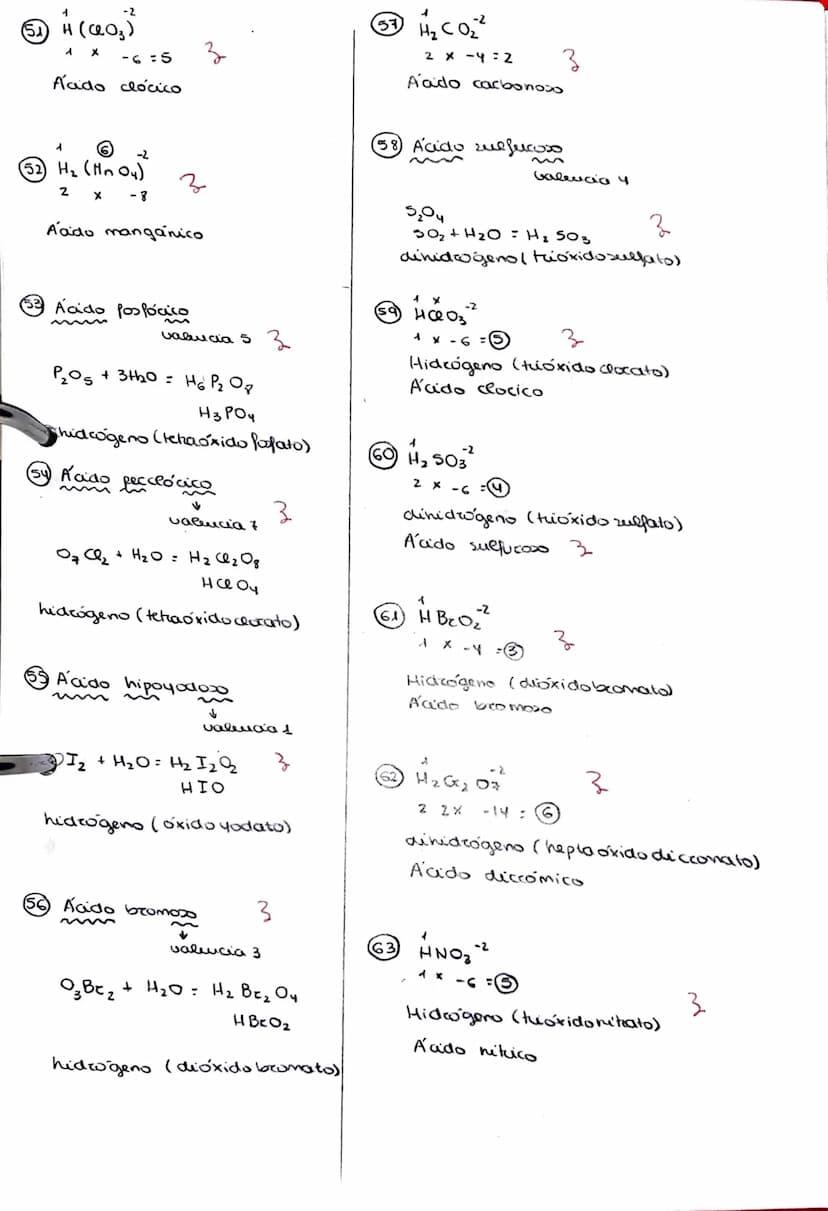 51) H (ClO3)
1 -2
1 x -6 = 5 3
Ácido clórico
52) H2 (MnO4)
1 6 -2
2 x -8 3
Ácido mangánico
53) Ácido fosfórico
valencia 5 3
P2O5 + 3H2O = H6P2O8
H3PO4
hidrógeno (tetraóxidofosfato)
54) Ácido perclórico
valencia 7 3
O7Cl2 + H2O = H2Cl2O8
HClO4
hidrógeno (tetraóxidoclorato)
55) Ácido hipoyodoso
valencia 1
I2 + H2O = H2I2O2 3
HIO
hidrógeno (óxidoyodato)
56) Ácido bromoso 3
valencia 3
O3Br2 + H2O = H2Br2O4
HBrO2
hidrógeno (dióxidobromato)
57) H2CO2
1 -2
2 x -4 = 2 3
Ácido carbonoso
58) Ácido sulfuroso
valencia 4
S2O4
SO2 + H2O = H2SO3 3
dinidrógeno (trióxidosulfato)
59) HClO3
1 x -2
1 x -6 = 5 3
Hidrógeno (trióxidoclorato)
Ácido clorico
60) H2SO3
1 -2
2 x -6 = 4
dinidrógeno (trióxidosulfato)
Ácido sulfuroso 3
61) HBrO2
1 -2
1 x -4 = 3 3
Hidrógeno (dióxidobromato)
Ácido bromoso
62) H2Cr2O7
1 -2 3
2 2x -14 = 6
dihidrógeno (heptaóxidodicromato)
Ácido dicrómico
63) HNO3
1 -2
1 x -6 = 5
Hidrógeno (trióxidonitrato) 3
Ácido nítrico